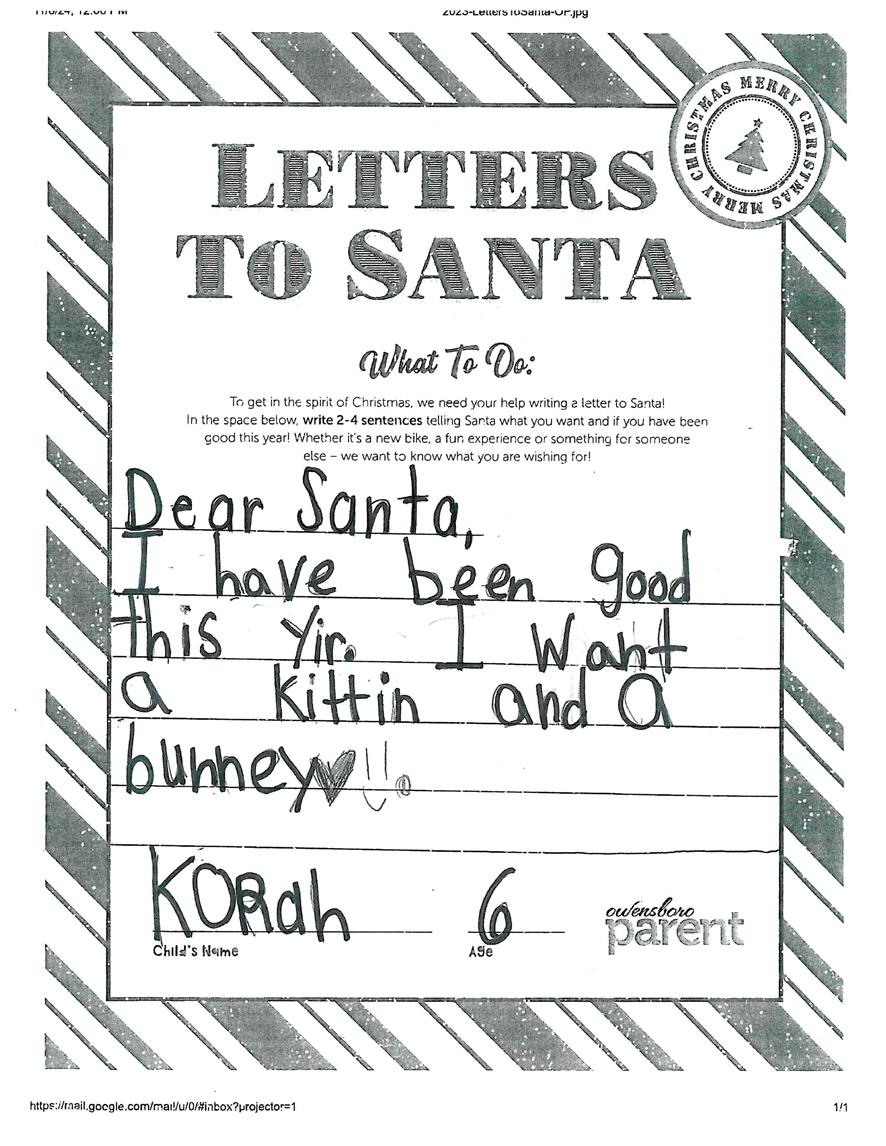 2023-LettersToSanta-OP.jpg
MERRY CHRISTMAS MERRY CHRISTMAS
LETTERS
TO SANTA
What To Do:
To get in the spirit of Christmas, we need your help writing a letter to Santa!
In the space below, write 2-4 sentences telling Santa what you want and if you have been
good this year! Whether it's a new bike, a fun experience or something for someone
else – we want to know what you are wishing for!
Dear Santa,
I have been good
this yir. I want
a kittin and a
bunney
KORah 6
Child's Name Age
owensboro
parent
https://mail.google.com/mail/u/0/#inbox?projector=1 1/1